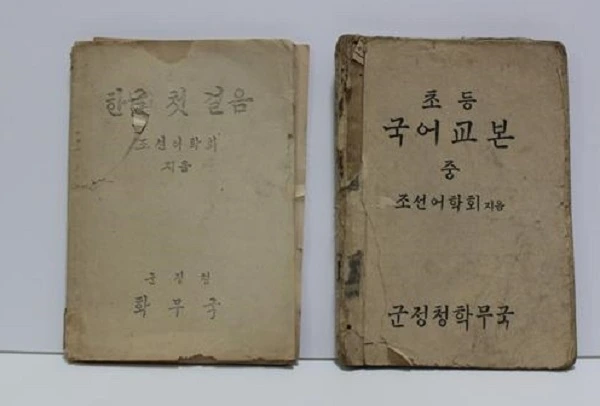 한글 첫 걸음
조선어학회
지음
군정청
학무국
초등
국어교본
중
조선어학회 지음
군정청학무국